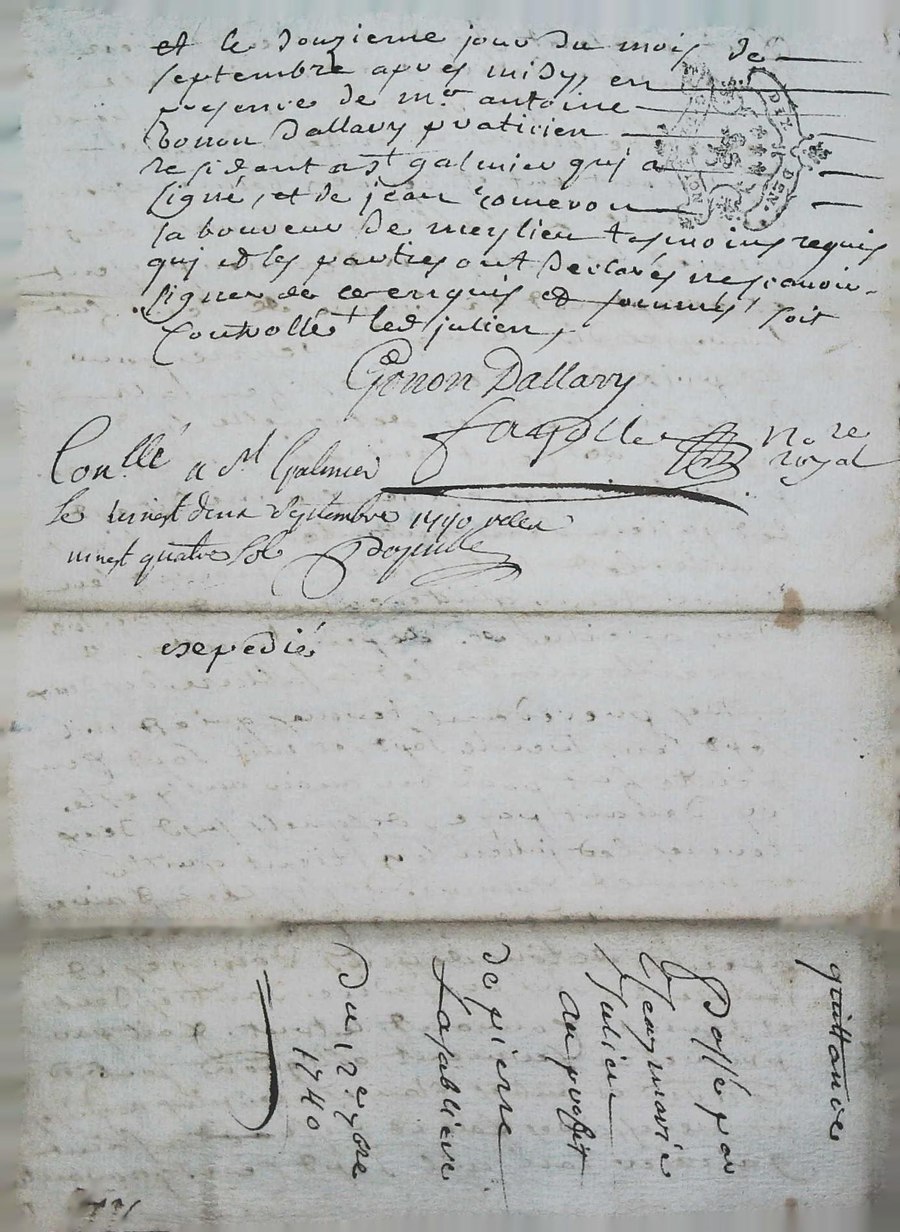 et le douzieme jour du mois de
septembre apres midy, en
presence de mre antoine
Gonon Dallavy praticien
residant a st galmier qui a
signé, et de jean
laboureur de meylieu tesmoins requis
qui et les parties ont declarés ne scavoir
signer de ce enquis et sommés soit
Controllé led julien,
Gonon Dallavy
No re
royal
Conllé a st Galmier
le vingt deux Septembre 1740
vingt quatre sol
DIX DEN.
expedié
quittance
Passée par
Jeanne marie
Julien
au profit
de pierre
Lasabliere
Du 12e 7bre
1740